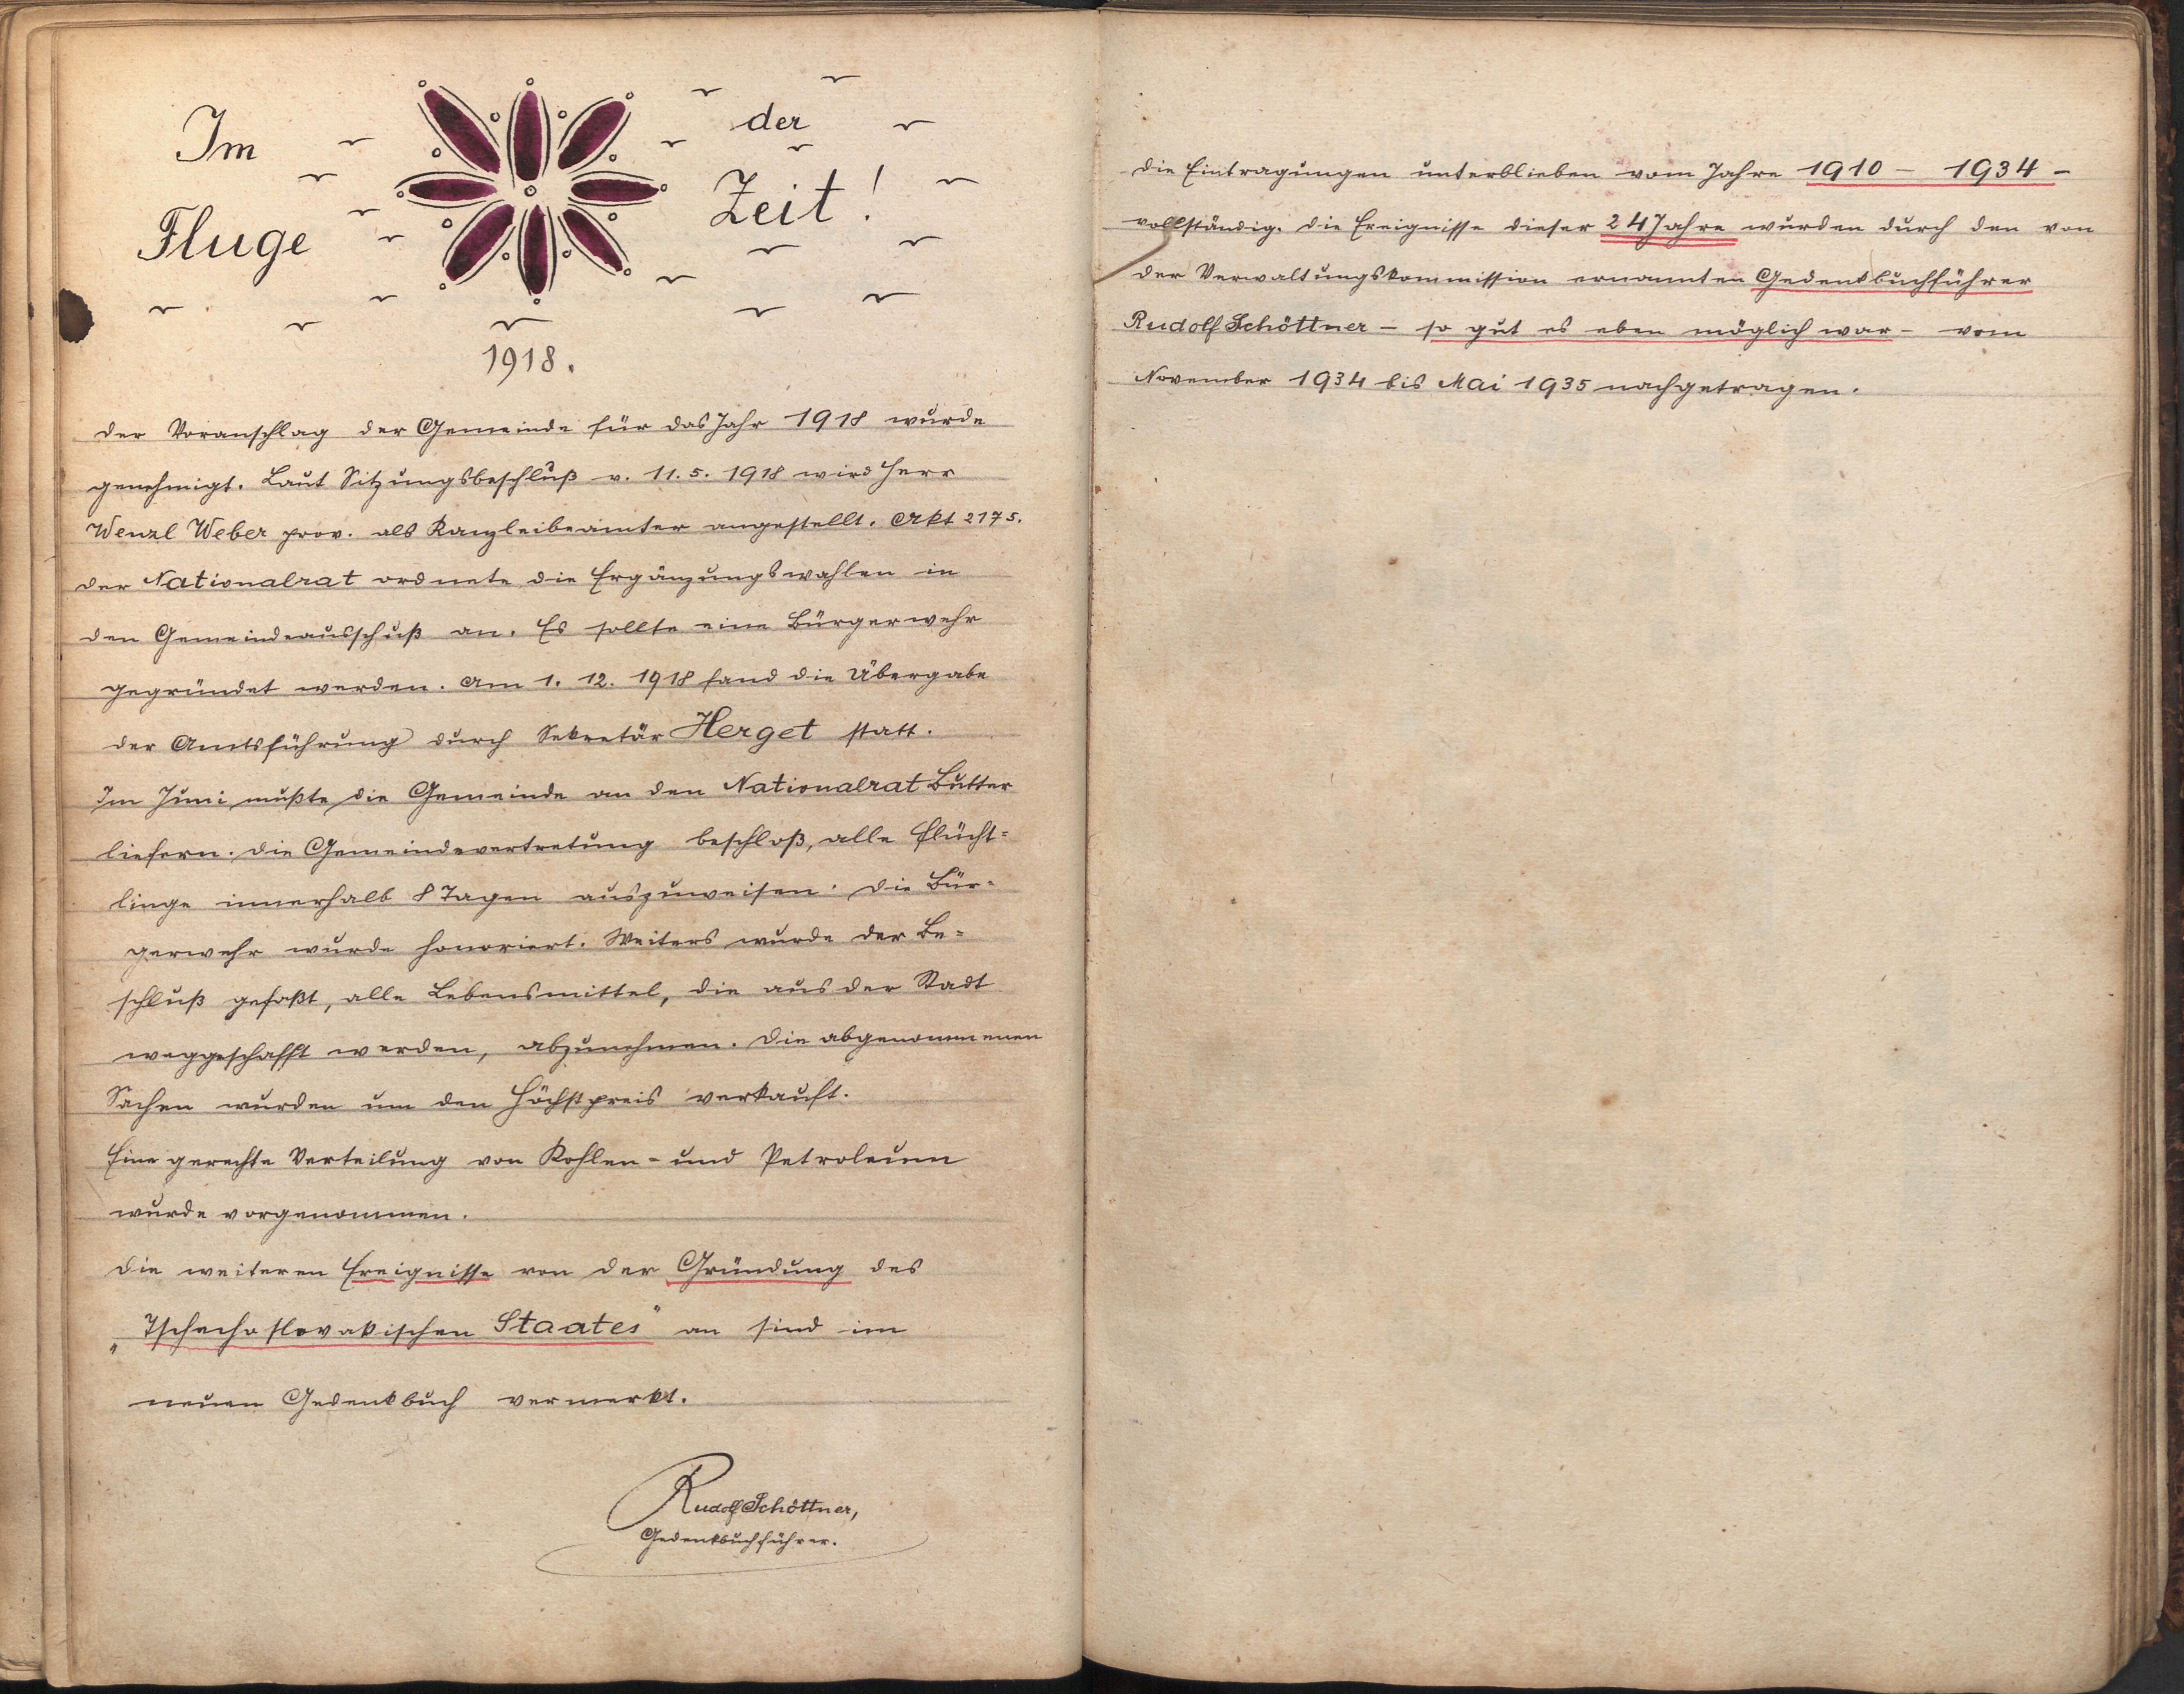 Im der
Fluge Zeit!
1918.
Der Voranschlag der Gemeinde für das Jahr 1918 wurde
genehmigt. Laut Sitzungsbeschluß v. 11.5. 1918 wird Herr
Wenzl Weber prov. als Kanzleibeamter angestellt. Akt 2175.
Der Nationalrat ordnete die Ergänzungswahlen in
den Gemeindeausschuß an. Es sollte eine Bürgerwehr
gegründet werden. Am 1. 12. 1918 fand die Übergabe
der Amtsführung durch Sekretär Herget statt.
Im Juni mußte die Gemeinde an den Nationalrat Butter
liefern. Die Gemeindevertretung beschloß, alle Flücht=
linge innerhalb 8 Tagen auszuweisen. Die Bür=
gerwehr wurde honoriert. Weiters wurde der Be=
schluß gefaßt, alle Lebensmittel, die aus der Stadt
weggeschafft werden, abzunehmen. Die abgenommenen
Sachen wurden um den Höchstpreis verkauft.
Eine gerechte Verteilung von Kohlen- und Petroleum
wurde vorgenommen.
Die weiteren Ereignisse von der Gründung des
„Tschechoslovakischen Staates" an sind im
neuen Gedenkbuch vermerkt.
Rudolf Schöttner,
Gedenkbuchführer.
Die Eintragungen unterblieben vom Jahre 1910 - 1934 -
vollständig. Die Ereignisse dieser 24 Jahre wurden durch den von
der Verwaltungskommission ernannten Gedenkbuchführer
Rudolf Schöttner - so gut es eben möglich war - vom
November 1934 bis Mai 1935 nachgetragen.